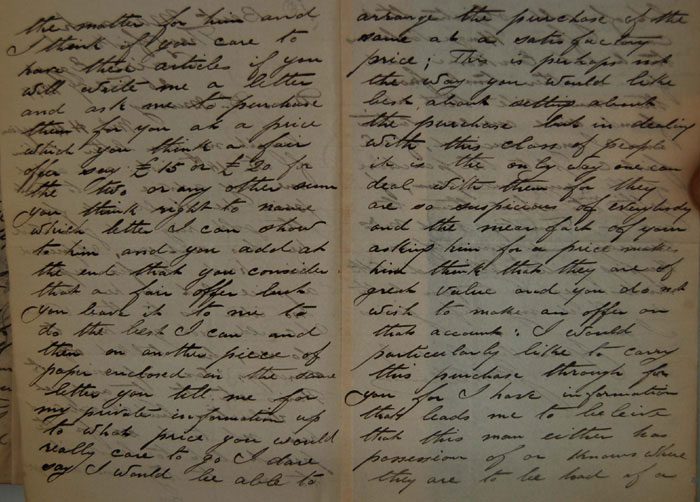 the matter for him and
I think if you care to
have these articles if you
will write me a letter
and ask me to purchase
them for you at a price
which you think a fair
offer say £15 or £20 for
the two or any other sum
you think right to name
which letter I can show
to him and you add at
the end that you consider
that a fair offer but
you leave it to me to
do the best I can and
then on another piece of
paper enclosed in the same
letter you tell me for
my private information up
to what price you would
really care to go I dare
say I would be able to
arrange the purchase of the
same at a satisfactory
price; This is perhaps not
the way you would like
best about setting about
the purchase but in dealing
with this class of people
it is the only way one can
deal with them for they
are so suspicious of everybody
and the mear fact of your
asking him for a price makes
him think that they are of
great value and you do not
wish to make an offer on
that account: I would
particularly like to carry
this purchase through for
you for I have information
that leads me to beleive
that this man either has
possession of or knows where
they are to be had of a